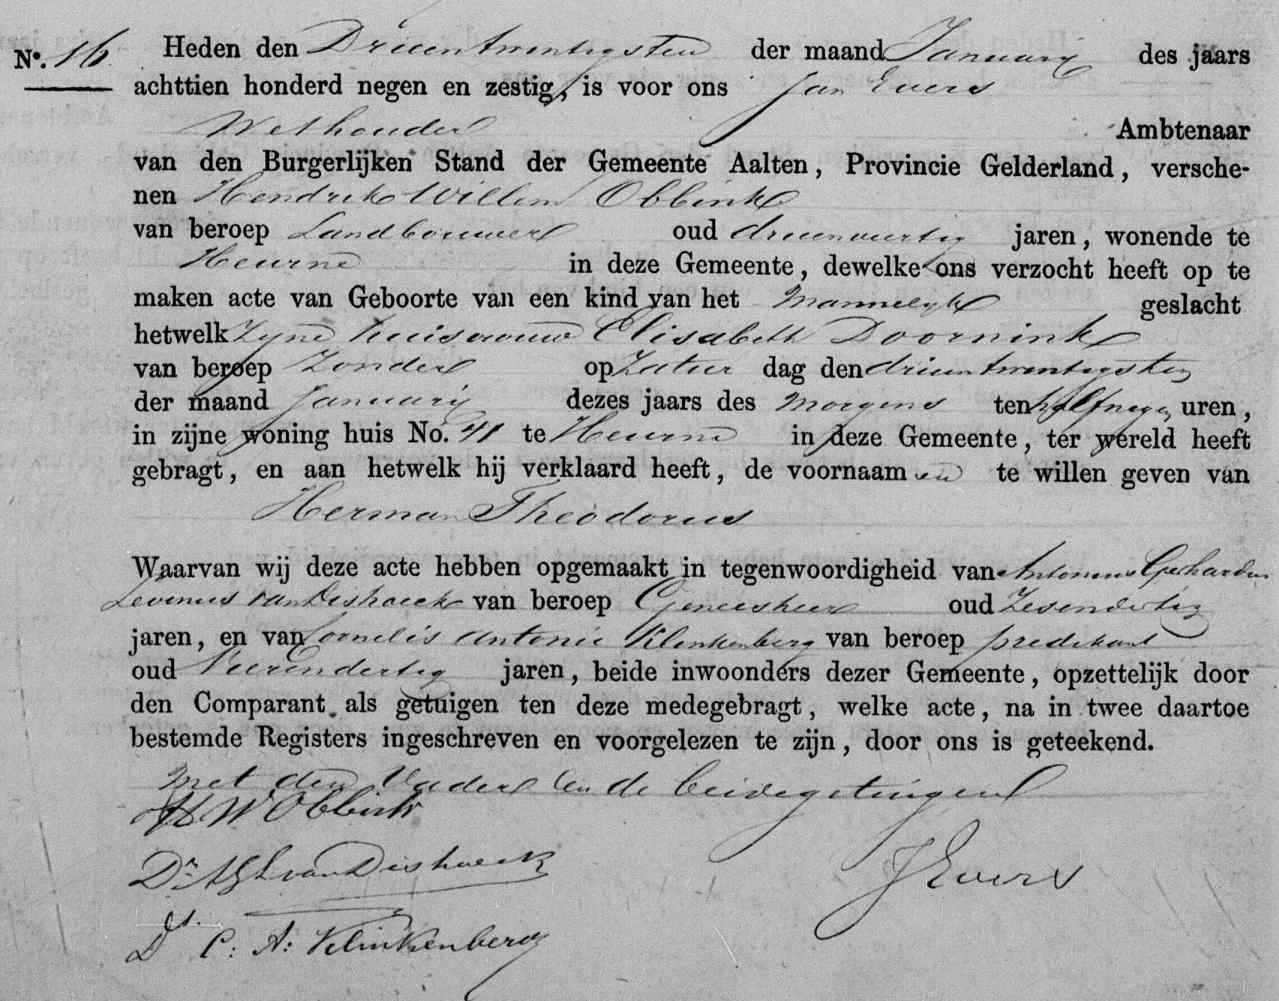 No. 16 Heden den Drieentwintigsten der maand Januarij des jaars
achttien honderd negen en zestig, is voor ons Jan Evers
Wethouder Ambtenaar
van den Burgerlijken Stand der Gemeente Aalten, Provincie Gelderland, versche-
nen Hendrik Willem Obbink
van beroep Landbouwer oud drieenveertig jaren, wonende te
Heurne in deze Gemeente, dewelke ons verzocht heeft op te
maken acte van Geboorte van een kind van het Mannelijk geslacht
hetwelk Zyne huisvrouw Elisabeth Doornink
van beroep Zonder op Zatur dag den drieentwintigsten
der maand Januarij dezes jaars des Morgens ten half negen uren,
in zijne woning huis No. 41 te Heurne in deze Gemeente, ter wereld heeft
gebragt, en aan hetwelk hij verklaard heeft, de voornaam en te willen geven van
Herman Theodorus
Waarvan wij deze acte hebben opgemaakt in tegenwoordigheid van Antonius Gerhardus
Levinus van Dishoeck van beroep Geneesheer oud Zesendertig
jaren, en van Cornelis Antonie Klinkenberg van beroep predikant
oud Vierendertig jaren, beide inwoonders dezer Gemeente, opzettelijk door
den Comparant als getuigen ten deze medegebragt, welke acte, na in twee daartoe
bestemde Registers ingeschreven en voorgelezen te zijn, door ons is geteekend.
Met den Vader en de beide getuigen
H W Obbink
Dr. A G L van Dishoeck
J Evers
Ds. C: A: Klinkenberg